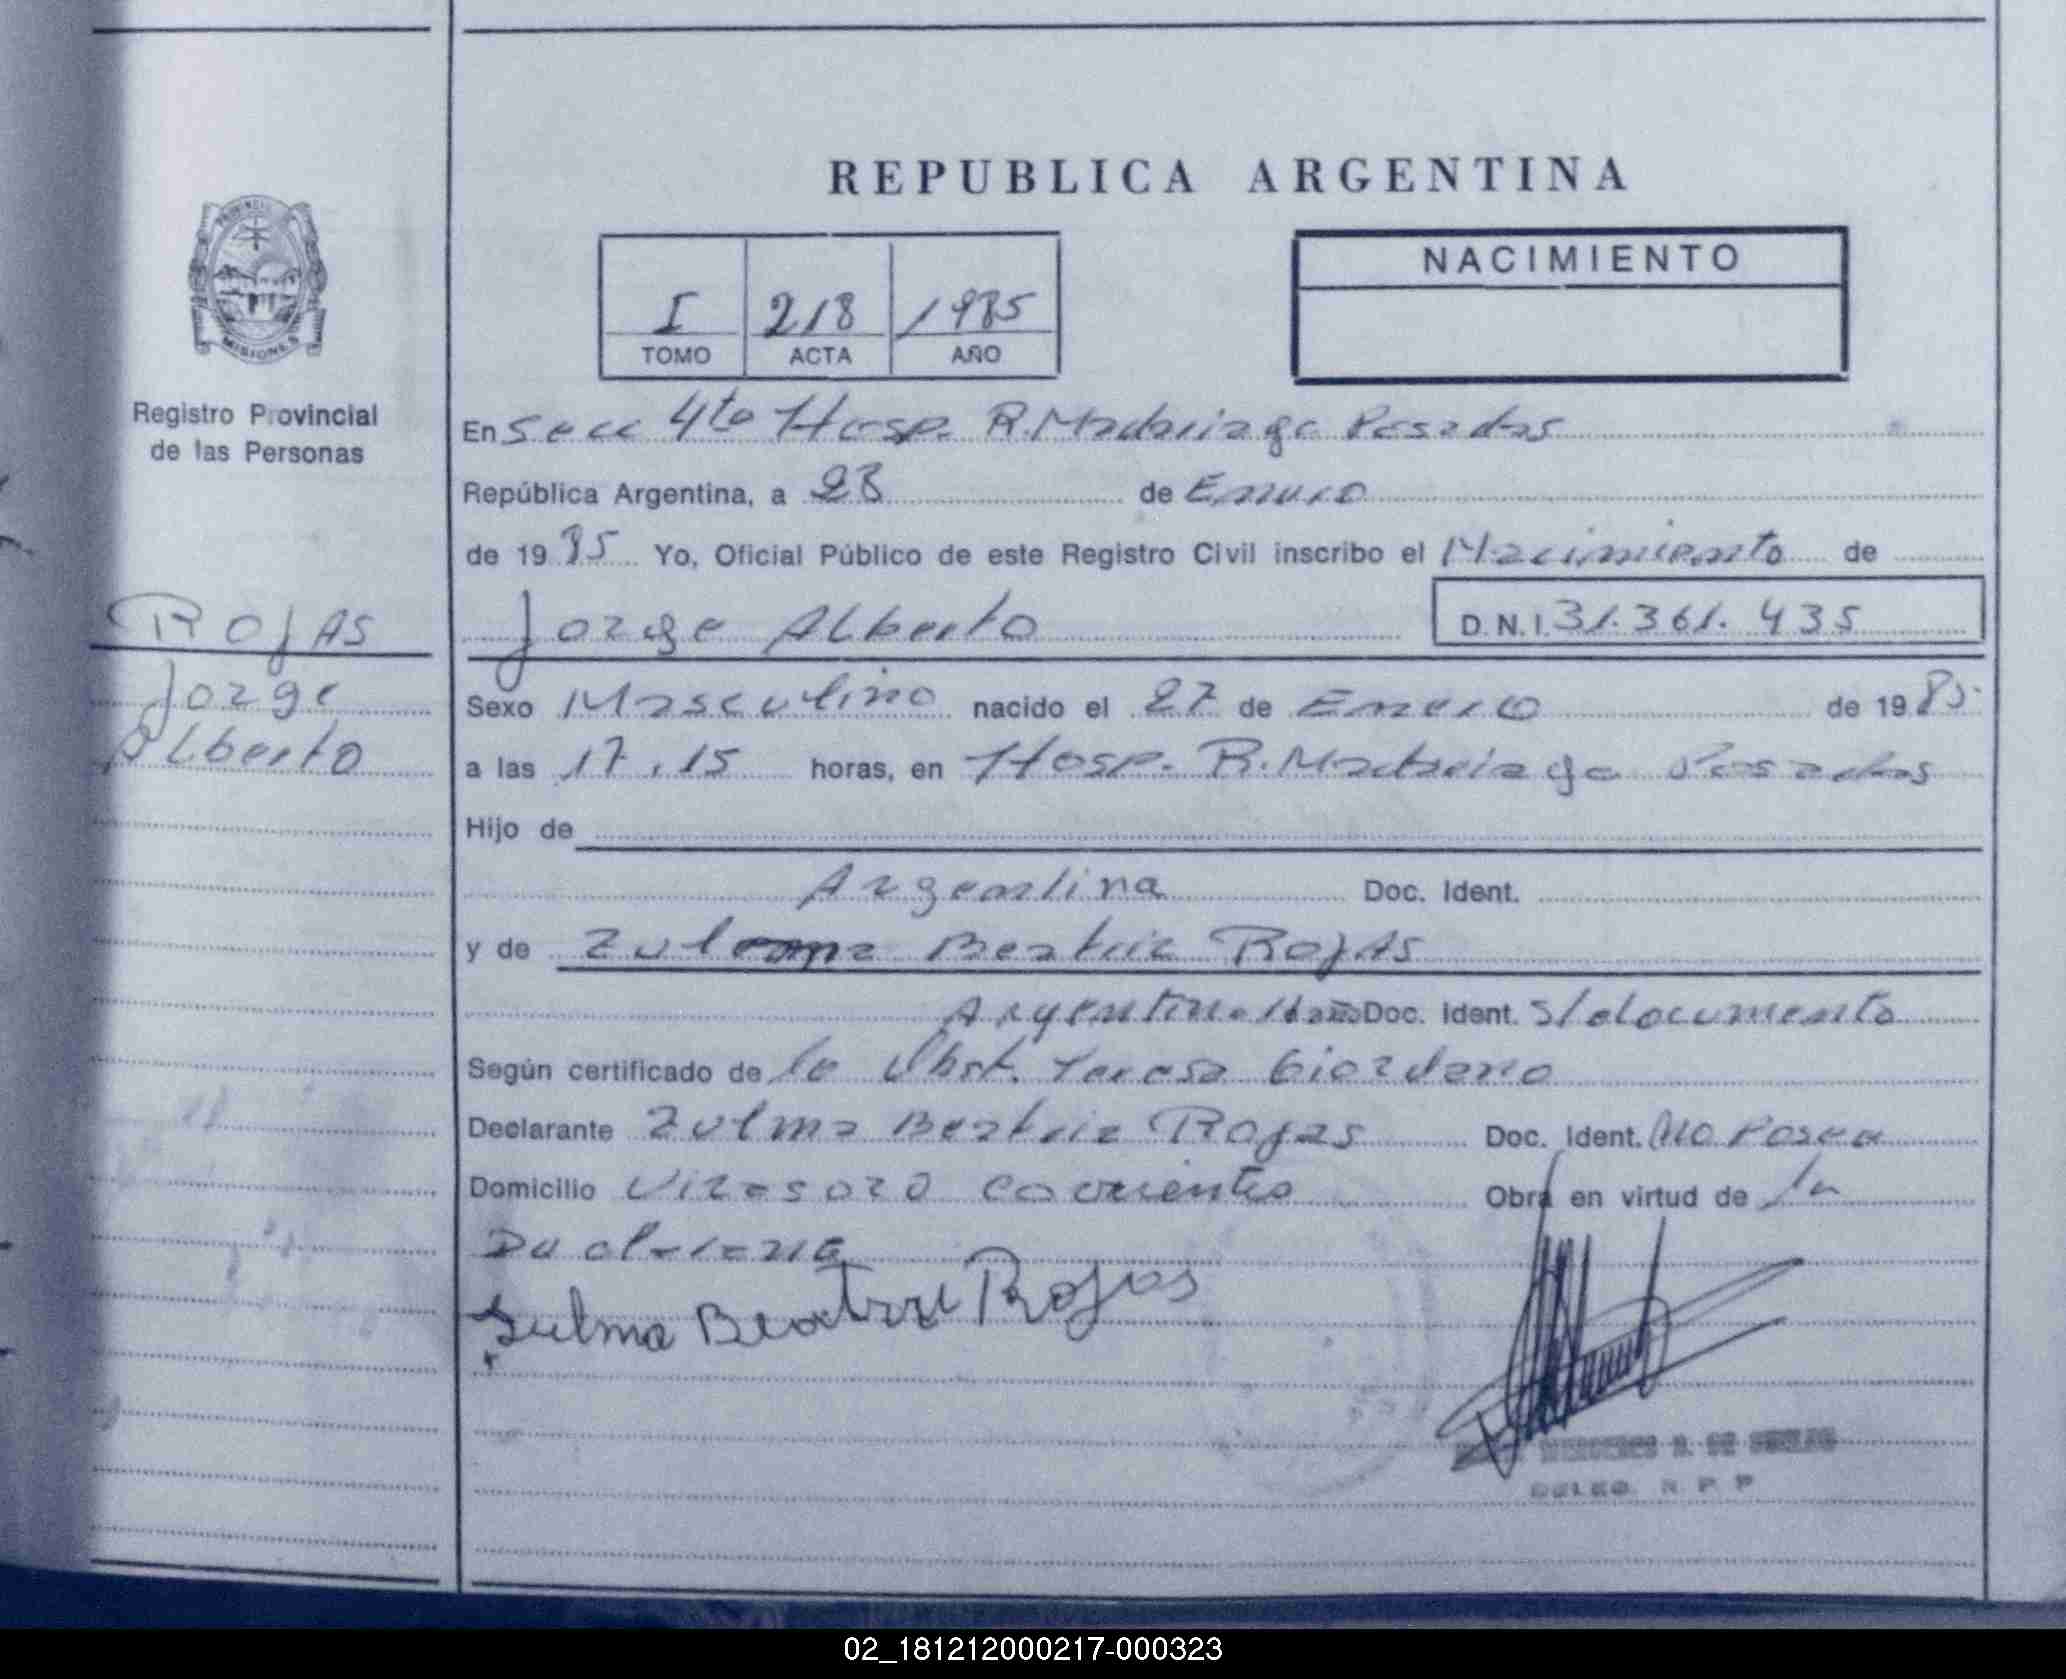 REPUBLICA ARGENTINA
PROVINCIA
MISIONES
Registro Provincial
de las Personas
I 218 1985
TOMO ACTA AÑO
NACIMIENTO
En Secc 4ta Hosp. R. Madariaga Posadas
República Argentina, a 28 de Enero
de 1985 Yo, Oficial Público de este Registro Civil inscribo el Nacimiento de
Jorge Alberto D.N.I. 31.361.435
ROJAS
Jorge
Alberto
Sexo Masculino nacido el 27 de Enero de 1985
a las 17,15 horas, en Hosp. R. Madariaga Posadas
Hijo de
Argentina Doc. Ident.
y de Zulma Beatriz Rojas
Argentina años Doc. Ident. s/documento
Según certificado de la Obst. Teresa Giordano
Declarante Zulma Beatriz Rojas Doc. Ident. No Posee
Domicilio Virasoro Corrientes Obra en virtud de la
Declarante
Sulma Beatriz Rojas
DELEG. R. P. P
02_181212000217-000323